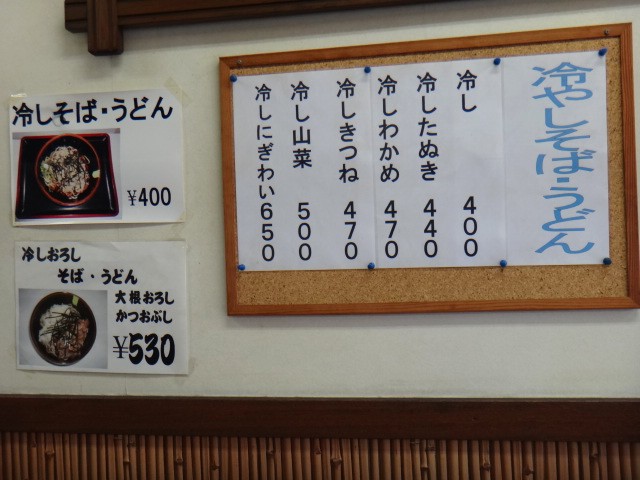 冷やしそば・うどん
冷し 400
冷したぬき 440
冷しわかめ 470
冷しきつね 470
冷し山菜 500
冷しにぎわい 650
冷しそば・うどん
¥400
冷しおろし
そば・うどん
大根おろし
かつおぶし
¥530